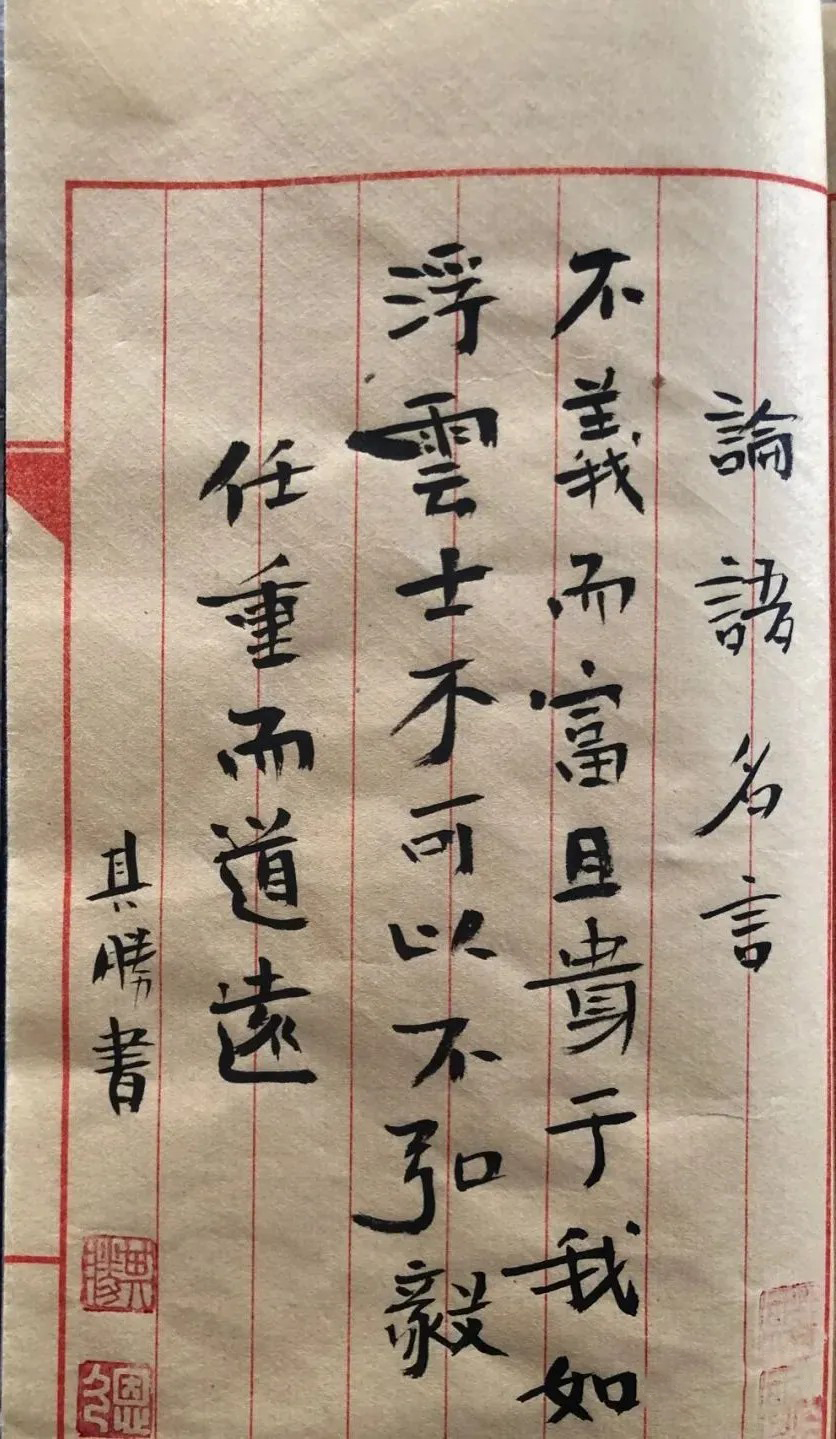 論語名言
不義而富且貴于我如
浮雲士不可以不弘毅
任重而道遠
其勝書